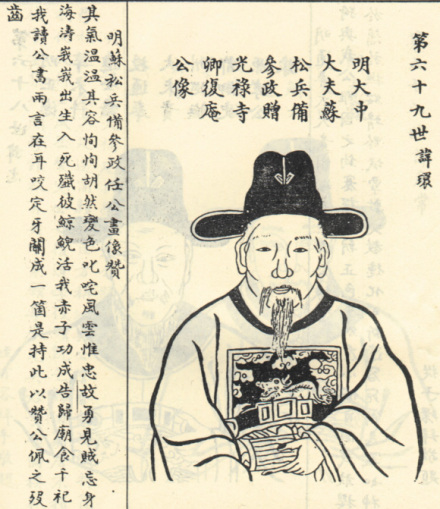 第六十九世諱環
明大中
大夫蘇
松兵備
參政贈
光祿寺
卿復庵
公像
明蘇松兵備參政任公畫像贊
其氣溫溫其容恂恂胡然變色叱咤風雲惟忠故勇見賊忘身
海濤峩峩出生入死殲彼鯨鯢活我赤子功成告歸廟食千祀
我讀公書兩言在耳咬定牙關成一箇是持此以贊公佩之歿
齒